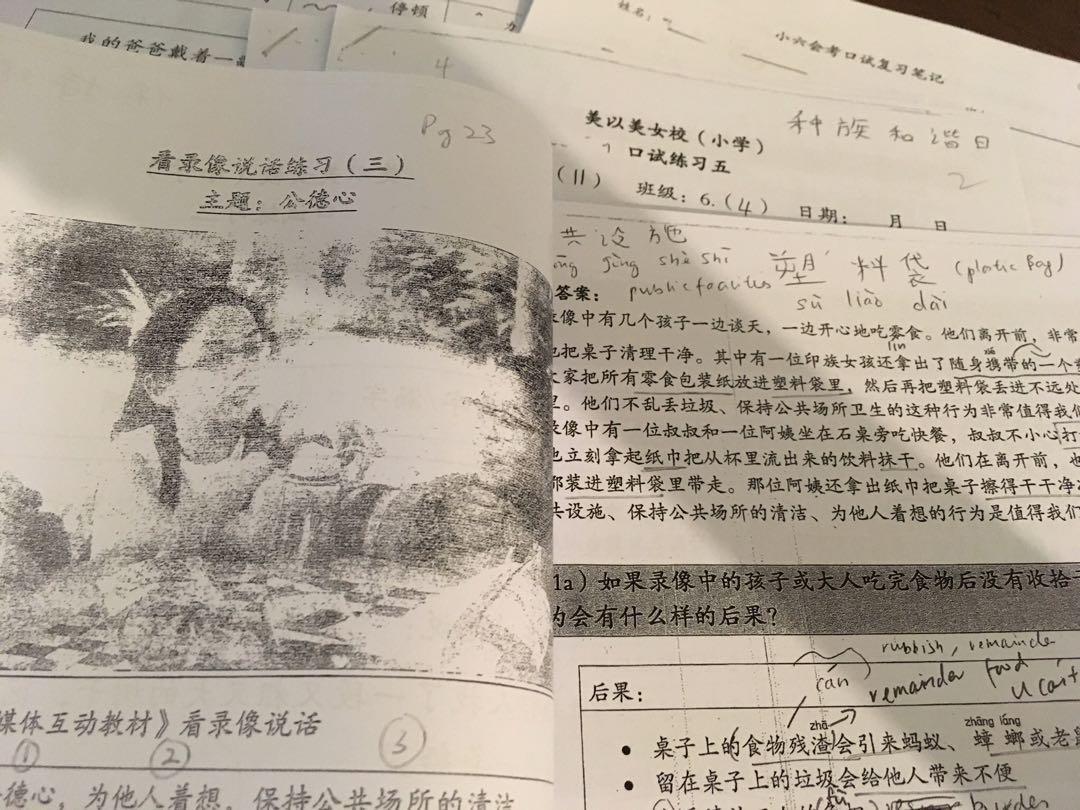 停顿
我的爸爸戴着一
4
姓名：
小六会考口试复习笔记
种族和谐日
2
美以美女校（小学）
口试练习五
(11) 班级：6.(4) 日期： 月 日
Pg 23
看录像说话练习（三）
主题：公德心
媒体互动教材》看录像说话
① ② ③
德心，为他人着想，保持公共场所的清洁
共设施 塑料袋 (plastic Bag)
gòng shè shī
public facilites sù liào dài
答案：
像中有几个孩子一边谈天，一边开心地吃零食。他们离开前，非常
lín
把桌子清理干净。其中有一位印族女孩还拿出了随身携带的一个
家把所有零食包装纸放进塑料袋里，然后再把塑料袋丢进不远处
。他们不乱丢垃圾、保持公共场所卫生的这种行为非常值得我们
像中有一位叔叔和一位阿姨坐在石桌旁吃快餐，叔叔不小心打
立刻拿起纸巾把从杯里流出来的饮料抹干。他们在离开前，也
装进塑料袋里带走。那位阿姨还拿出纸巾把桌子擦得干干净
共设施、保持公共场所的清洁、为他人着想的行为是值得我们
1a）如果录像中的孩子或大人吃完食物后没有收拾
会有什么样的后果？
rubbish, remainder
cán remainder food
后果：
zhā zhāng láng
• 桌子上的食物残渣会引来蚂蚁、蟑螂或老
• 留在桌子上的垃圾会给他人带来不便